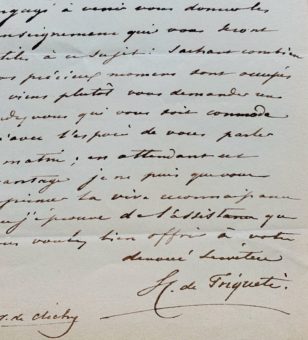 engagé à venir vous donner les
renseignemens qui vous seront
utiles à ce sujet : Sachant combien
vos précieux momens sont occupés
viens plutôt vous demander un
rendez vous qui vous soit commode
avec l'espoir de vous parler
matin ; en attendant cet
avantage je ne puis que vous
exprimer la vive reconnaissance
que j'éprouve de l'assistance que
vous voulez bien offrir à votre
dévoué Serviteur
H. de Triqueti.
r. de Clichy